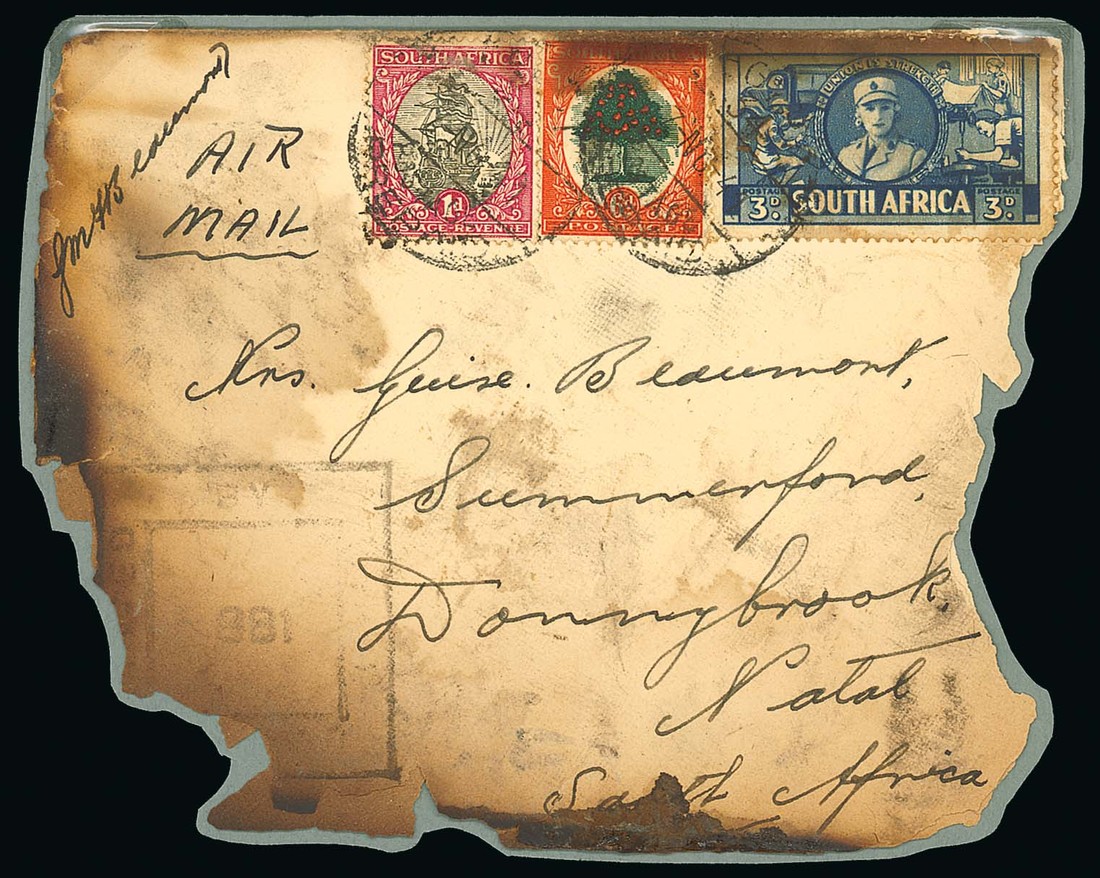 SOUTH AFRICA
1d
POSTAGE-REVENUE
SOUTH AFRICA
6d
POSTAGE
UNION IS STRENGTH
POSTAGE POSTAGE
3D. SOUTH AFRICA 3D.
Beaumont
AIR
MAIL
Mrs. Guise. Beaumont,
Summerford,
Donnybrook,
Natal
South Africa